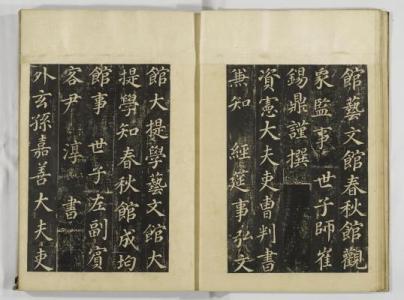 館藝文館春秋館觀
象監事 世子師崔
錫鼎謹撰
資憲大夫吏曹判書
兼知 經筵事弘文
館大提學藝文館大
提學知春秋館成均
館事 世子左副賓
客尹 淳 書
外玄孫嘉善大夫吏